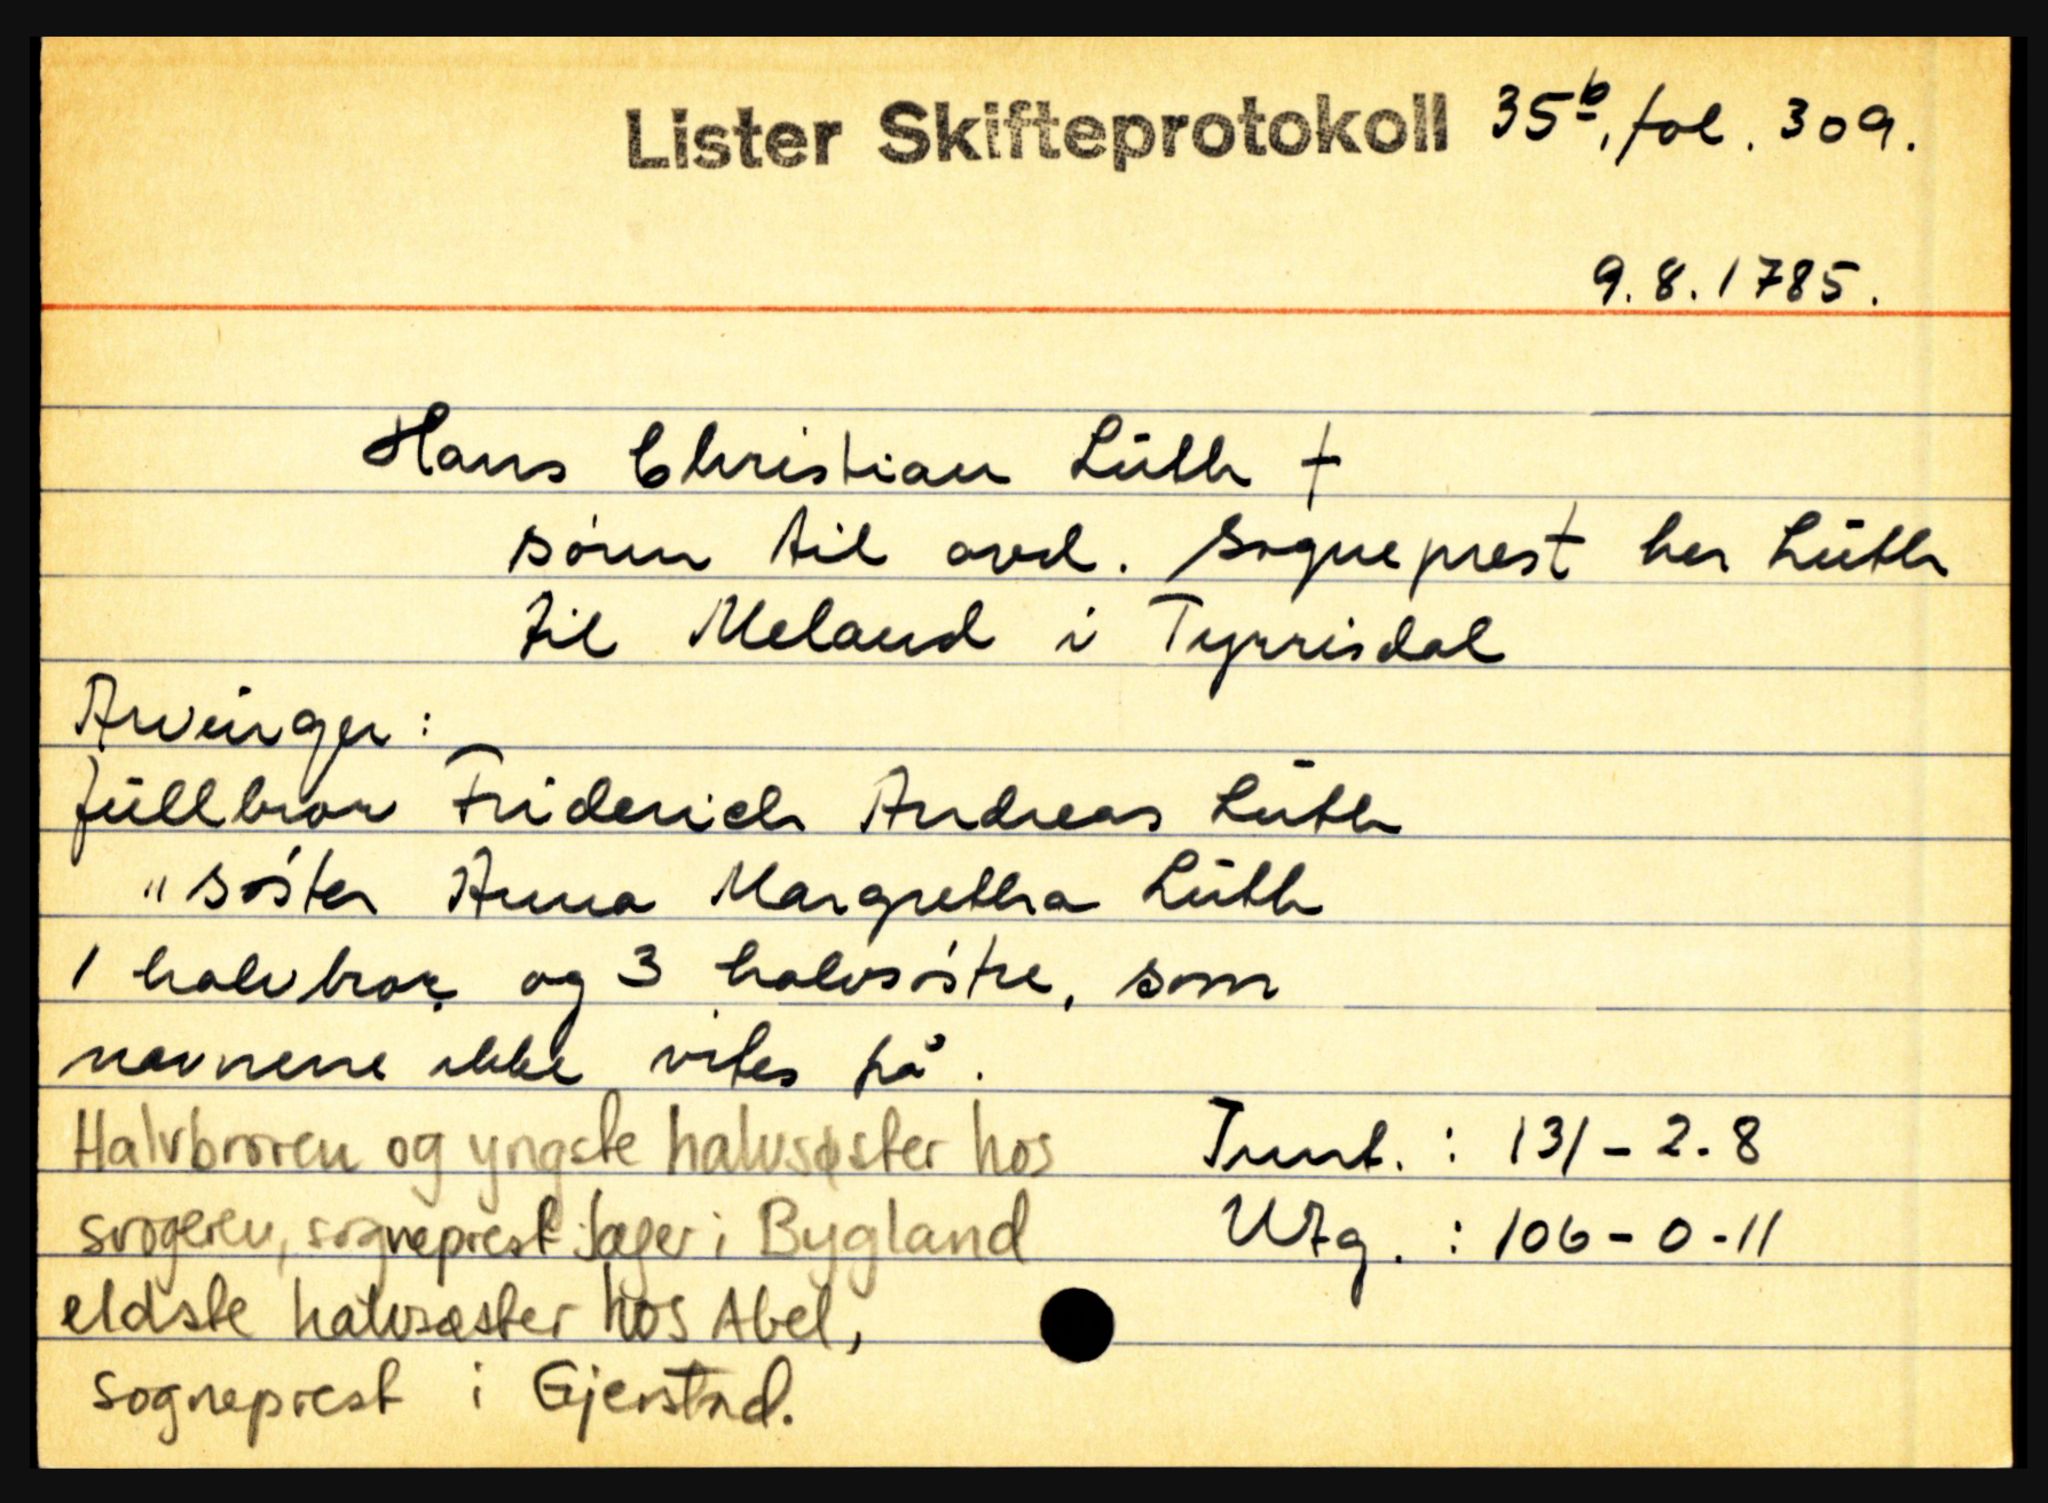 Lister Skifteprotokoll 35b, fol. 309.
9.8.1785.
Hans Christian Lüth †
sønn til avd. sogneprest her Lüth
til Meland i Tyrrisdal
Arvinger:
füllbror Friderich Andreas Lüth
" søster Anna Margretha Lüth
1 halvbror og 3 halvsøstre, som
navnene ikke vites på.
Halvbroren og yngste halvsøster hos
svogeren, sogneprest Jæger i Bygland
eldste halvsøster hos Abel,
sogneprest i Gjerstad.
Innt. : 131-2-8
Utg. : 106-0-11